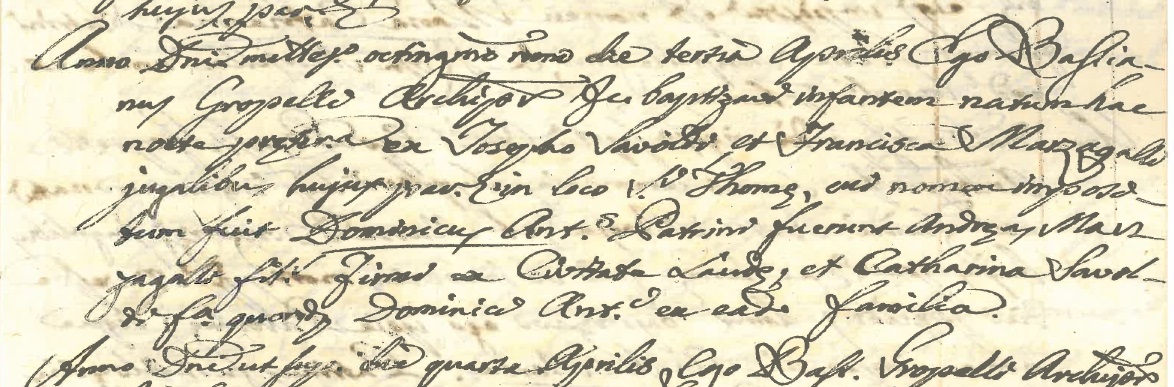 hujus par.
Anno Dni millesº octingmo nono die tertia Aprilis Ego Bastia-
nus Gropelli Archipr baptizavi infantem natum hac
nocte proxima ex Josepho Savoldi et Francisca Marzagalli
jugalibus hujus par. in loco S. Thomę, cui nomen imposi-
tum fuit Dominicus Ant.s Patrini fuerunt Andreas Mar
zagalli fil. ex Civitate Laudę, et Catharina Savol-
di fa quondam Dominici Ant.i ex ead. familia.
Anno Dni ut sup. die quarta Aprilis, Ego Bast. Gropelli Archipr